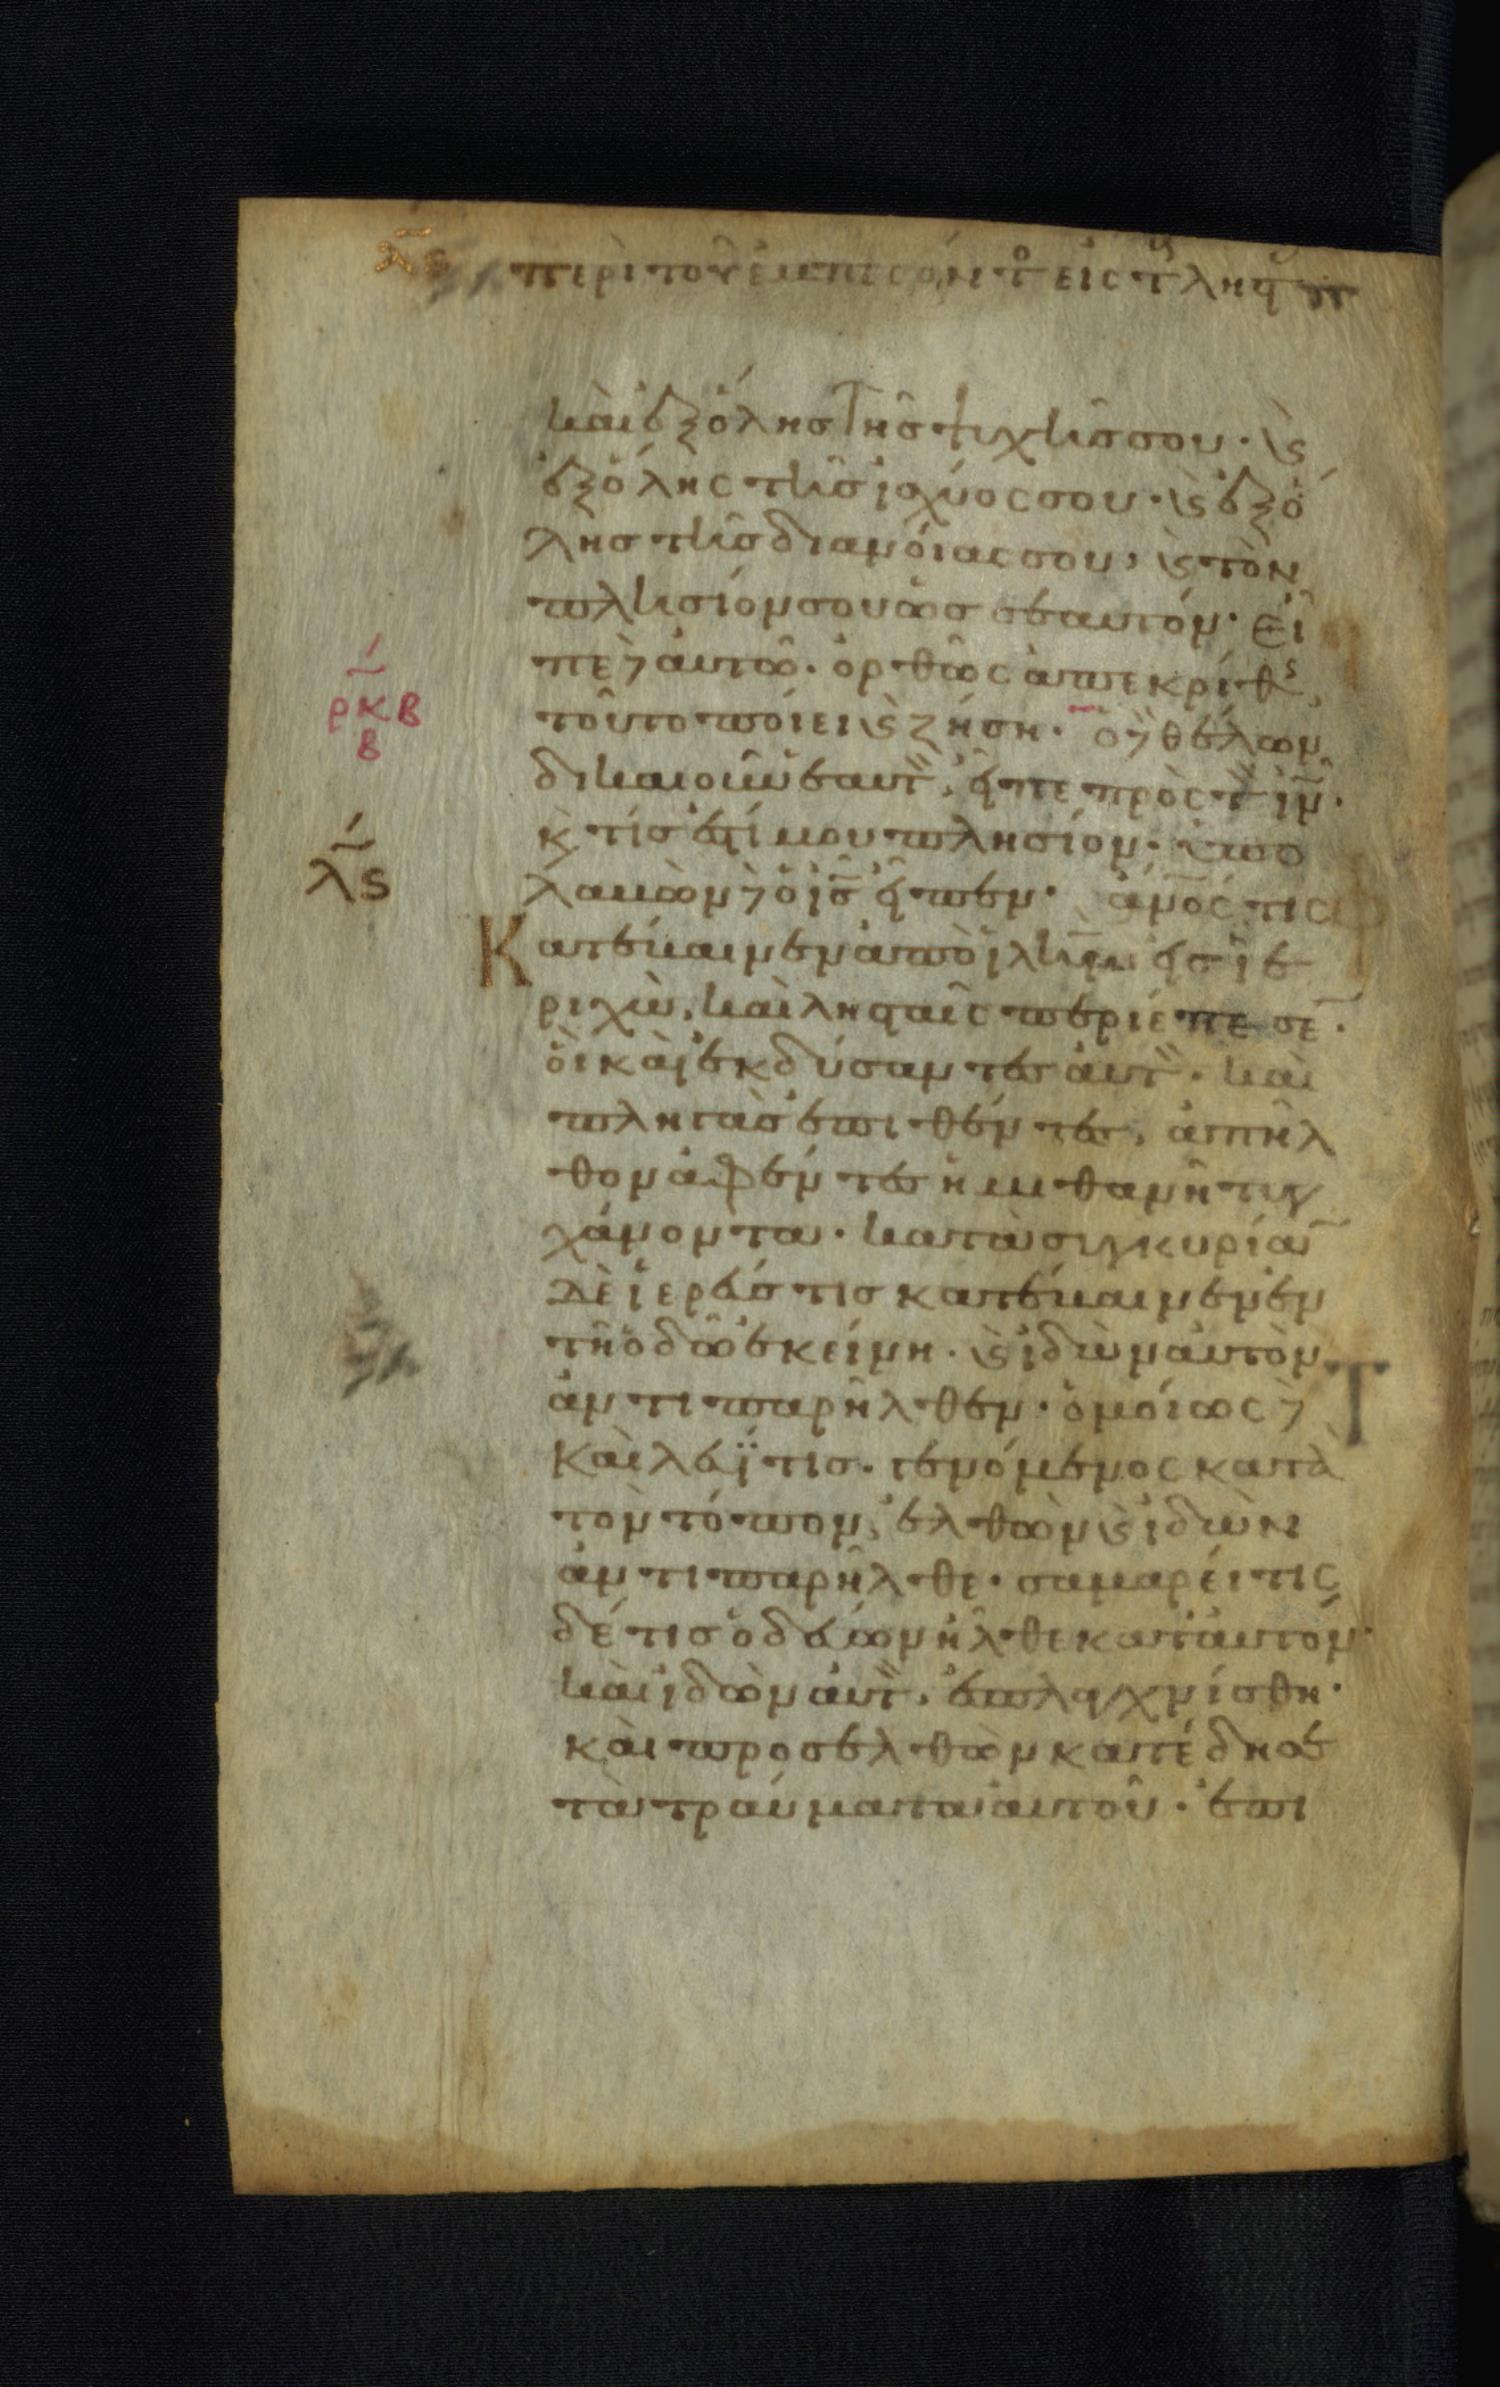 λε περὶ τοῦ ἐμπεσόντ εἰς τ ληστ
καὶ ἐξ ὅλης τῆς ψυχῆς σου· ϗ
ἐξ ὅλης τῆς ἰσχύος σου· ϗ ἐξ ὅ
λης τῆς διανοίας σου, ϗ τὸν
πλησίον σου ὡς σεαυτόν· Εἶ
πε δὲ αὐτῶ· ὀρθῶς ἀπεκρίθς
τοῦτο ποίει ϗ ζήση· ὁ δὲ θέλων
ρκβ
β
δικαιοῦν ἑαυτ, εἶπε πρὸς τ ιν·
κ τίς ἐστί μου πλησίον· ὑπο
λς
λαβὼν δὲ ὁ ις εἶπεν· ανος τις
Κατέβαινεν ἀπὸ ιλημ εἰς ἱε
ριχὼ, καὶ λησταῖς περιέπεσε·
οἳ καὶ ἐκδύσαντες αὐτ· καὶ
πληγὰς ἐπιθέντες, ἀπῆλ
θον ἀφέντες ἡμιθανῆ τυγ
χάνοντα· κατὰ συγκυρία
δὲ ἱερεύς τις κατέβαινεν ἐν
τῆ ὁδῶ ἐκείνη· ϗ ἰδὼν αὐτὸν
ἀντιπαρῆλθεν· ὁμοίως δὲ
καὶ λευΐτις· γενόμενος κατὰ
τὸν τόπον, ἐλθὼν ϗ ἰδὼν
ἀντιπαρῆλθε· σαμαρείτις
δέ τις ὁδεύων ἦλθε κατ αὐτόν·
καὶ ἰδὼν αὐτ, ἐσπλαγχνίσθη·
καὶ προσελθὼν κατέδησε
τὰ τραύματα αὐτοῦ· ἐπι